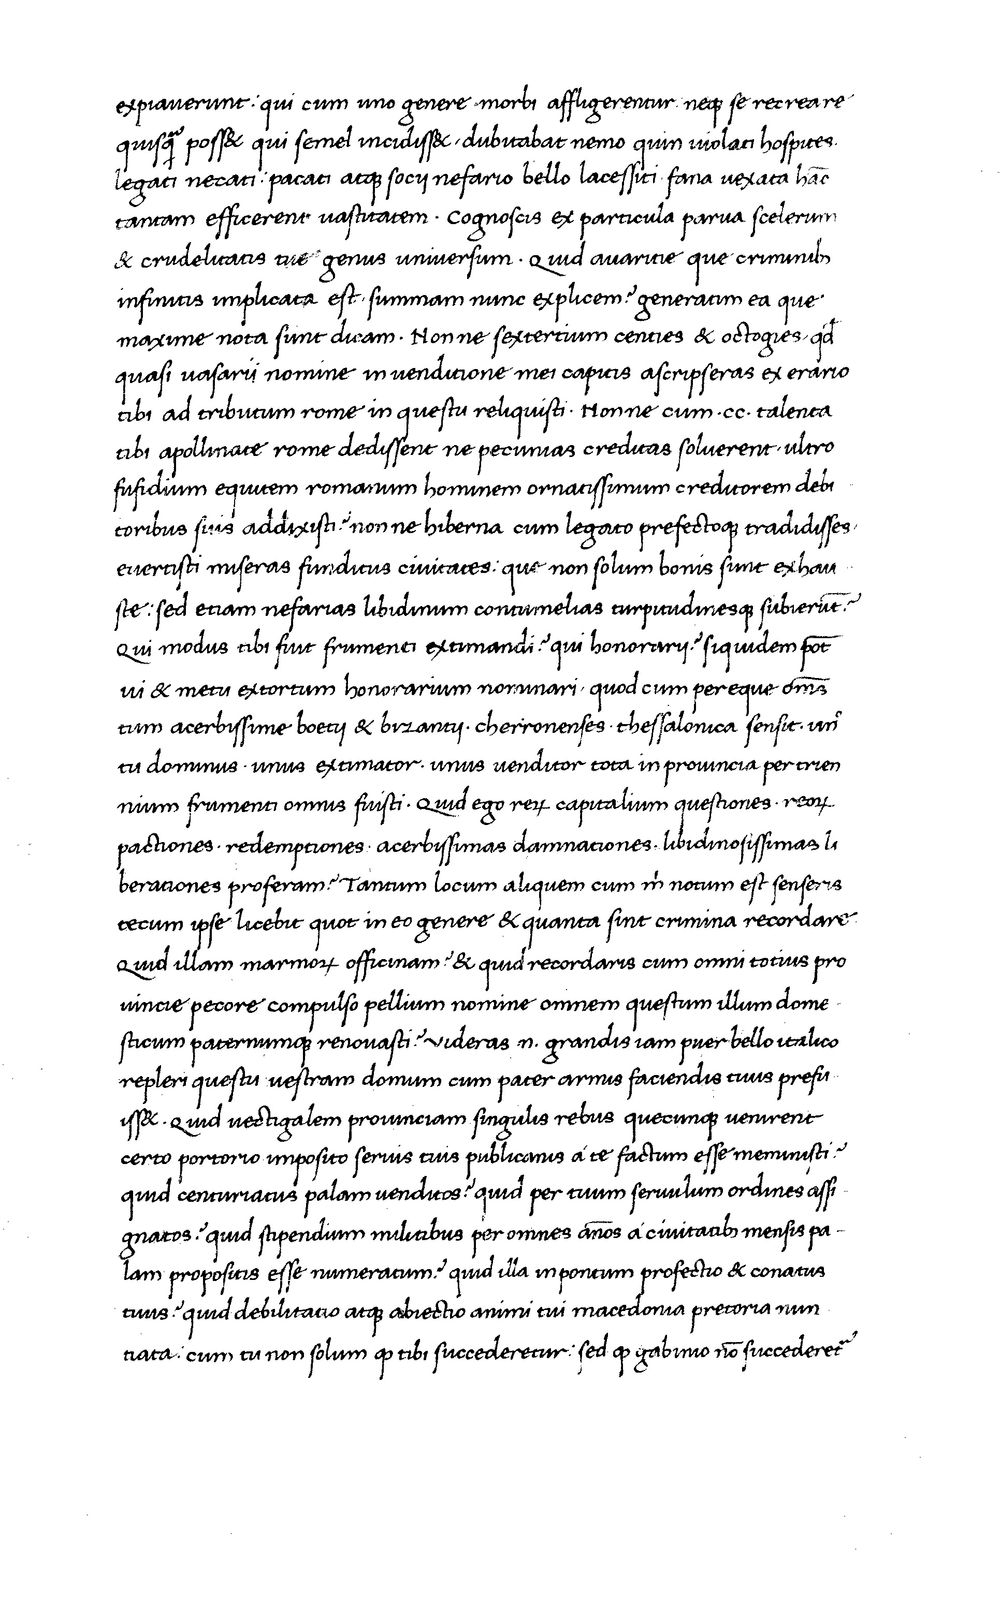 expiauerunt: qui cum uno genere morbi affligerentur neq se recreare
quisq̃ poss& qui semel incidiss&, dubitabat nemo quin uiolati hospites.
legati necati: pacati atq socij nefario bello lacessiti fana uexata hãc
tantam efficerent uastitatem. Cognoscis ex particula parua scelerum
& crudelitatis tue genus uniuersum. Quid auaritie que criminib
infinitis implicata est, summam nunc explicem? generatim ea que
maxime nota sunt dicam. Nonne sextertium centies & octogies, qd
quasi uasarij nomine in uenditione mei capitis ascripseras ex erario
tibi ad tributum rome in questu reliquisti. Nonne cum .cc. talenta
tibi apollinate rome dedissent ne pecunias creditas soluerent, ultro
fufidium equitem romanum hominem ornatissimum creditorem debi
toribus suis addixisti? nonne hiberna cum legato prefectoq tradidisses,
euertisti miseras funditus ciuitates: que non solum bonis sunt exhau
ste: sed etiam nefarias libidinum contumelias turpitudinesq subierũt?
Qui modus tibi fuit frumenti extimandi? qui honorarij? siquidem põt
ui & metu extortum honorarium nominari, quod cum pereque om̃s
tum acerbissime boetij & bizantij. cherronenses. thessalonica sensit. un̉
tu dominus. unus extimator. unus uenditor tota in prouincia per trien
nium frumenti omnis fuisti. Quid ego reꝝ capitalium questiones. reoꝝ
pactiones. redemptiones. acerbissimas damnationes. libidinosissimas li
berationes proferam? Tantum locum aliquem cum m̉ notum est senseris
tecum ipse licebit quot in eo genere & quanta sint crimina recordare
Quid illam marmoꝝ officinam? & quid recordaris cum omni totius pro
uincie pecore compulso pellium nomine omnem questum illum dome
sticum paternumq renouasti? Videras n. grandis iam puer bello italico
repleri questu uestram domum cum pater armis faciendis tuis prefu
iss&. Quid uectigalem prouinciam singulis rebus quecunq uenirent
certo portorio imposito seruis tuis publicanis a te factum esse meministi?
quid centuriatus palam uenditos? quid per tuum seruulum ordines assi
gnatos? quid stipendium militibus per omnes ãnos a ciuitatib mensis pa-
lam propositis esse numeratum? quid illa in pontum profectio & conatus
tuus? quid debilitatio atq abiectio animi tui macedonia pretoria nun
tiata: cum tu non solum ꝙ tibi succederetur: sed ꝙ gabinio nõ succederet̃